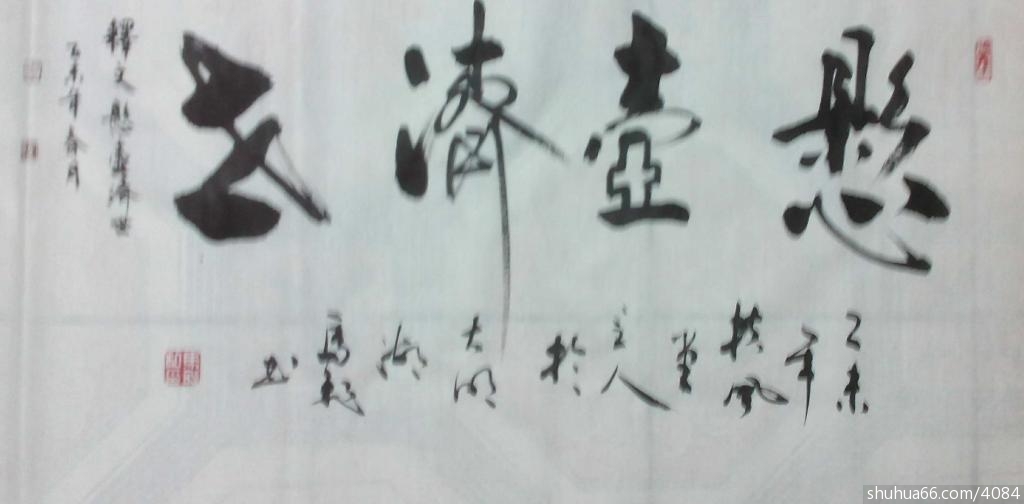 懸壺濟世
乙未年扶風堂主人於大明湖馬
書
釋文懸壺濟世
乙未年春月
shuhua66.com/4084